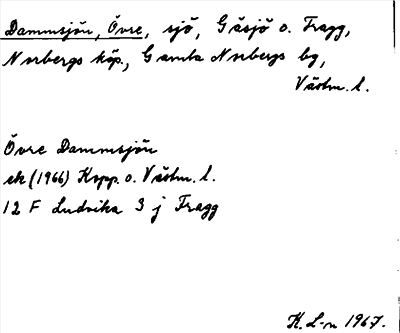 Dammsjön, Övre, sjö, Gåsjö o. Fragg,
Norbergs köp., Gamla Norbergs bg,
Västm. l.
Övre Dammsjön
ek (1966) Kopp. o. Västm. l.
12 F Ludvika 3 j Fragg
K. L-n 1967.